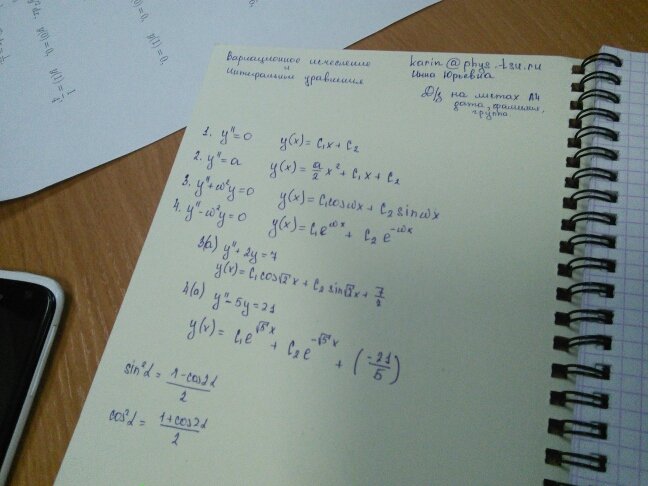 Вариационное исчисление
и
интегральные уравнения
karin@phys.tsu.ru
Инна Юрьевна
Д/з на листах А4
дата, фамилия,
группа
1. y''=0 y(x)= C₁x + C₂
2. y''=a y(x)= a/2 x² + C₁x + C₂
3. y''+ω²y=0 y(x)= C₁cosωx + C₂ sinωx
4. y''-ω²y=0 y(x)= C₁e^ωx + C₂ e^-ωx
3(a) y''+2y=7
y(x)= C₁cos√2x + C₂ sin√2x + 7/2
4(a) y''-5y=21
y(x)= C₁e^√5x + C₂e^-√5x + (-21/5)
sin²α = 1-cos2α/2
cos²α = 1+cos2α/2
y(0)=0,
y(1)=0,
y(0)=0, y(1)=1/4